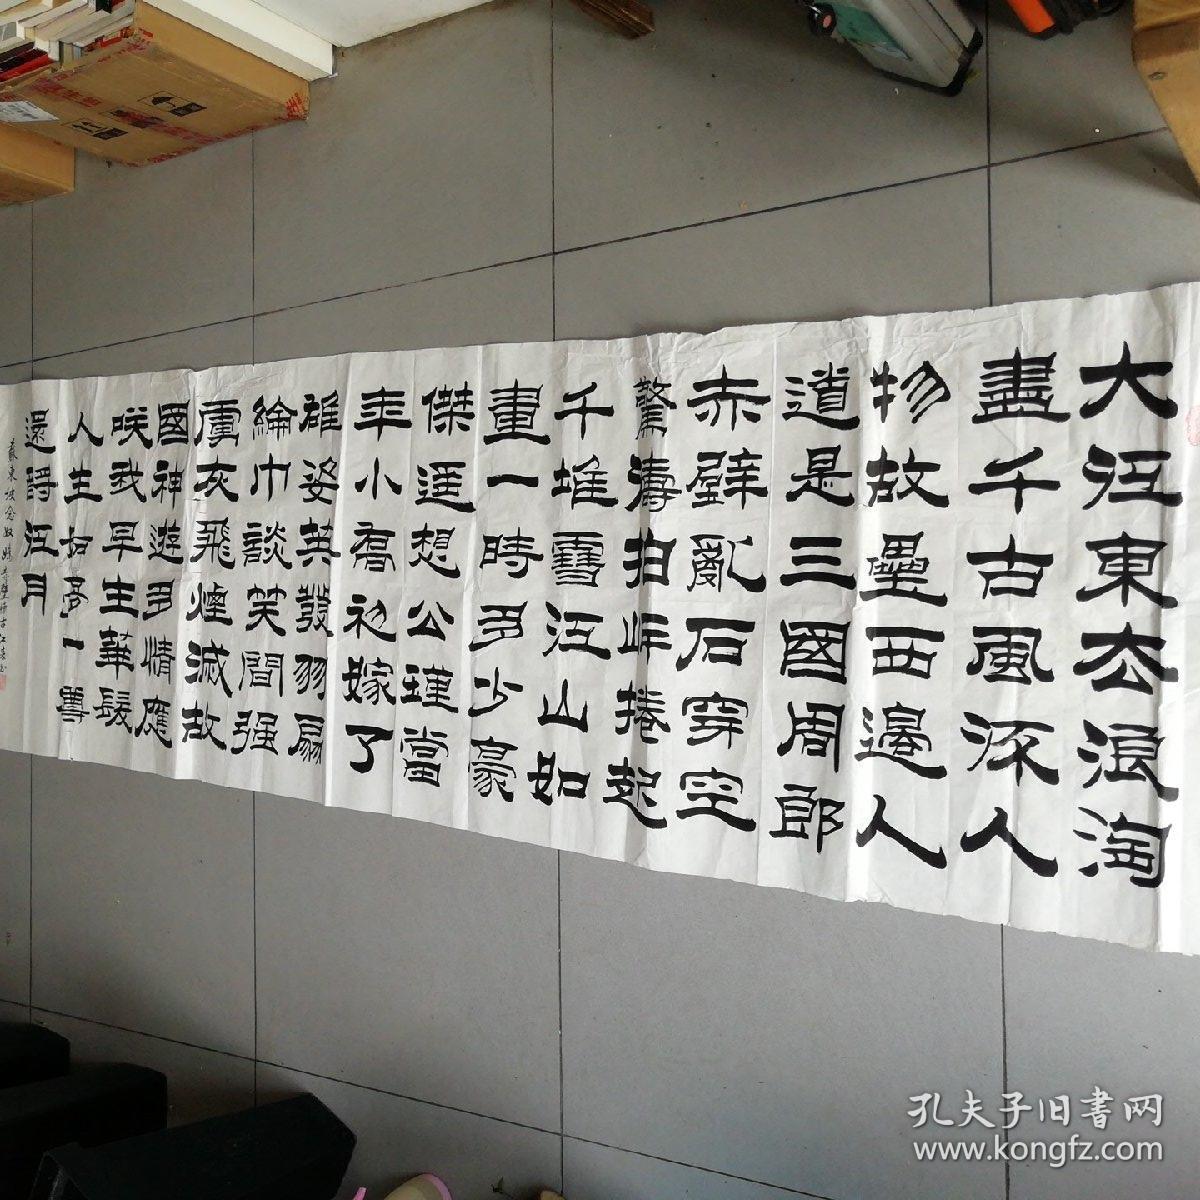 大江東去浪淘
盡千古風流人
物故壘西邊人
道是三國周郎
赤壁亂石穿空
驚濤拍岸捲起
千堆雪江山如
畫一時多少豪
傑遥想公瑾當
年小喬初嫁了
雄姿英發羽扇
綸巾談笑間强
虜灰飛煙滅故
國神遊多情應
咲我早生華髮
人生如夢一尊
還酹江月
蘇東坡念奴嬌赤壁懷古
孔夫子旧書网
www.kongfz.com